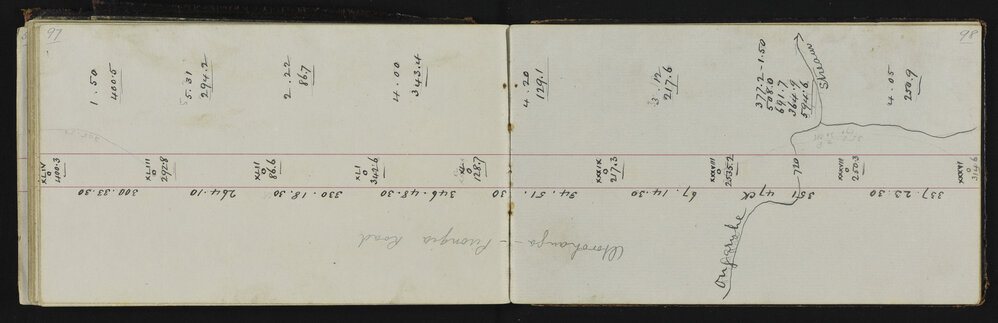 97
1.50
400.5
5.31
294.2
2.22
86.7
4.00
343.4
XLIV
0
400.3
XLIII
0
292.8
XLII
0
86.6
XLI
0
342.6
XL
0
128.7
300.33.30
264.10
330.18.30
346.48.30
30
Otorohanga - Pirongia Road
98
4.20
129.1
3.12
217.6
377.2-1.50
508.0
691.7
364.9
594.6
Stream
4.05
250.9
XXXIX
0
217.3
XXXVIII
0
2535.2
720
XXXVII
0
250.3
XXXVI
0
314.6
34.51.
67.14.30
47 CK
351
337.23.30
Ongarohe